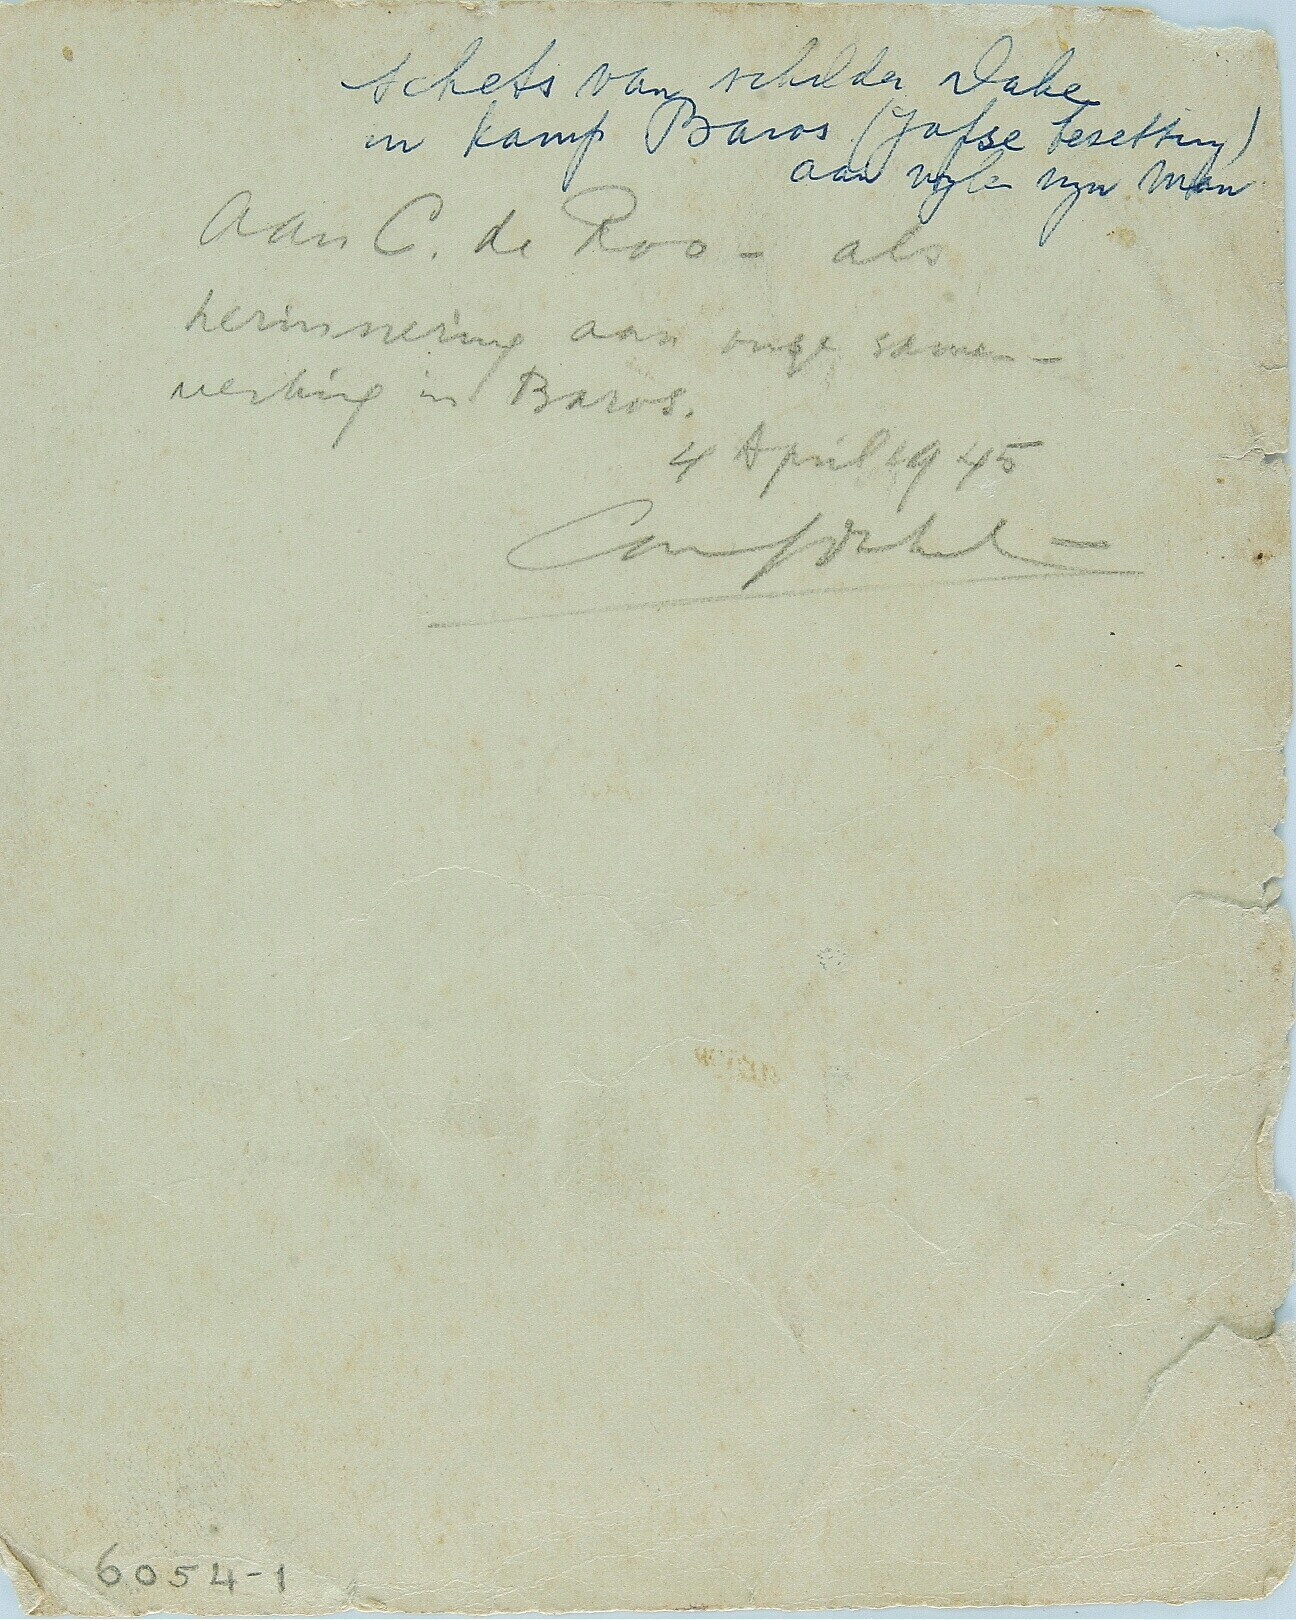 schets van schilder Dake
in kamp Baros (Japse besetting)
aan wyle myn man
Aan C. de Roo - als
herinnering aan onze samen-
werking in Baros.
4 April 1945
6054-1